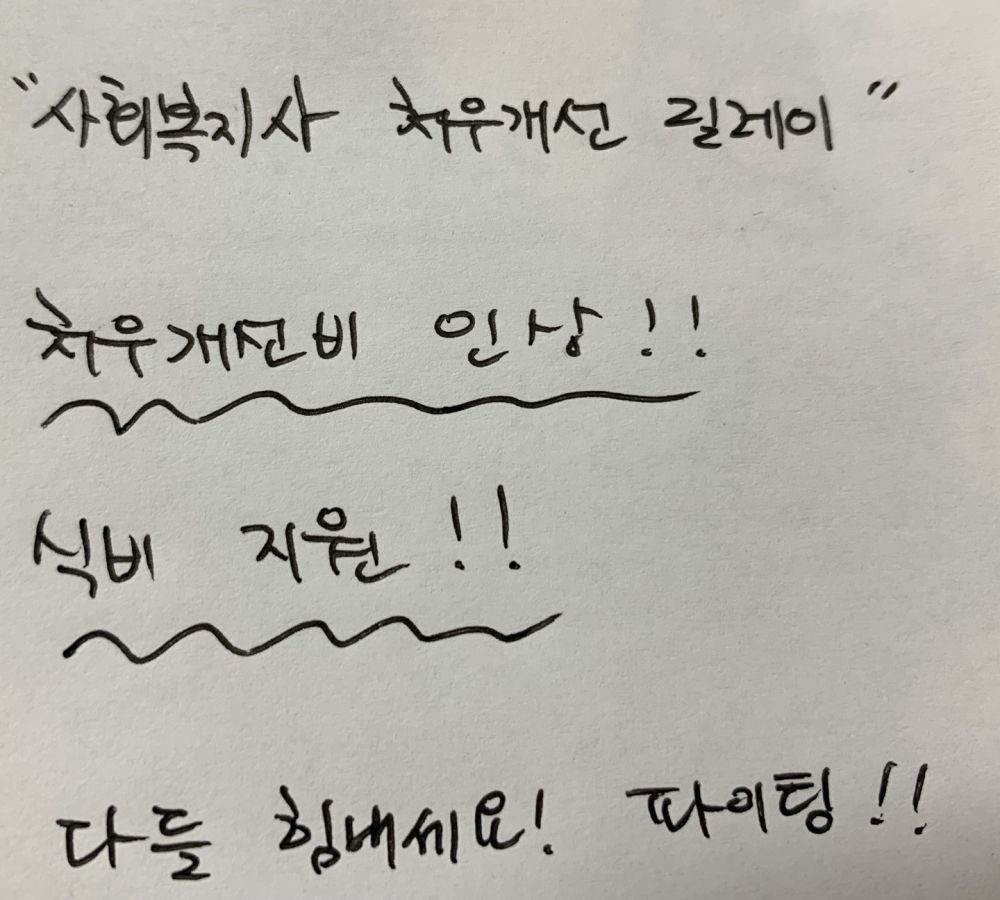 "사회복지사 처우개선 릴레이"
처우개선비 인상!!
식비 지원!!
다들 힘내세요! 파이팅!!